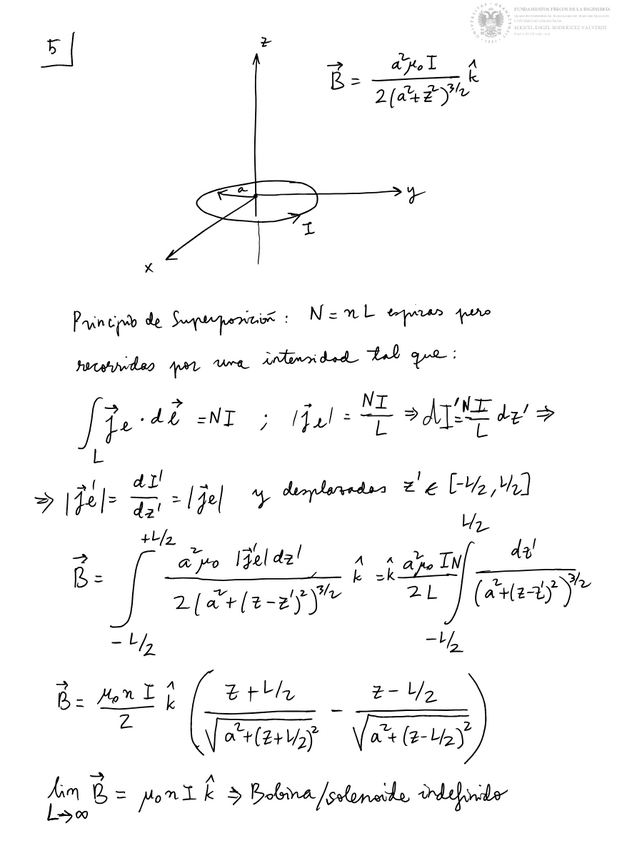 FUNDAMENTOS FÍSICOS DE LA INGENIERÍA
5
z
B⃗ = a²μ₀ I / 2(a²+z²)^3/2 k̂
a
y
I
x
Principio de Superposición: N = nL espiras pero
recorridas por una intensidad tal que:
∫_L j⃗e · dℓ⃗ = NI ; |j⃗e| = NI/L ⇒ dI' = NI/L dz' ⇒
⇒ |j⃗e'| = dI'/dz' = |j⃗e| y desplazadas z' ∈ [-L/2, L/2]
B⃗ = ∫_{-L/2}^{+L/2} a²μ₀ |j⃗e'| dz' / 2(a²+(z-z')²)^3/2 k̂ = k̂ a²μ₀ IN / 2L ∫_{-L/2}^{L/2} dz' / (a²+(z-z')²)^3/2
B⃗ = μ₀ n I / 2 k̂ ( z+L/2 / √(a²+(z+L/2)²) - z-L/2 / √(a²+(z-L/2)²) )
lim_{L→∞} B⃗ = μ₀ n I k̂ ⇒ Bobina/solenoide indefinido